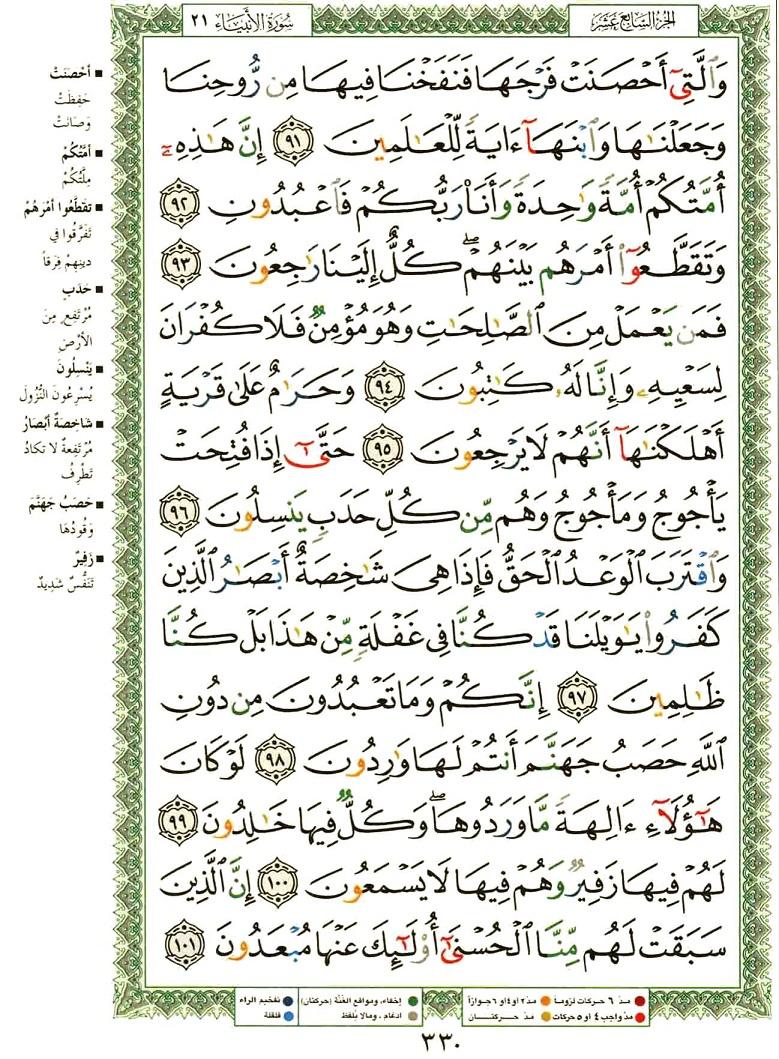 الجزء السابع عشر
سورة الأنبياء ٢١
وَٱلَّتِىٓ أَحْصَنَتْ فَرْجَهَا فَنَفَخْنَا فِيهَا مِن رُّوحِنَا
وَجَعَلْنَٰهَا وَٱبْنَهَآ ءَايَةً لِّلْعَٰلَمِينَ ٩١ إِنَّ هَٰذِهِۦٓ
أُمَّتُكُمْ أُمَّةً وَٰحِدَةً وَأَنَا۠ رَبُّكُمْ فَٱعْبُدُونِ ٩٢
وَتَقَطَّعُوٓا۟ أَمْرَهُم بَيْنَهُمْ ۖ كُلٌّ إِلَيْنَا رَٰجِعُونَ ٩٣
فَمَن يَعْمَلْ مِنَ ٱلصَّٰلِحَٰتِ وَهُوَ مُؤْمِنٌ فَلَا كُفْرَانَ
لِسَعْيِهِۦ وَإِنَّا لَهُۥ كَٰتِبُونَ ٩٤ وَحَرَٰمٌ عَلَىٰ قَرْيَةٍ
أَهْلَكْنَٰهَآ أَنَّهُمْ لَا يَرْجِعُونَ ٩٥ حَتَّىٰٓ إِذَا فُتِحَتْ
يَأْجُوجُ وَمَأْجُوجُ وَهُم مِّن كُلِّ حَدَبٍ يَنسِلُونَ ٩٦
وَٱقْتَرَبَ ٱلْوَعْدُ ٱلْحَقُّ فَإِذَا هِىَ شَٰخِصَةٌ أَبْصَٰرُ ٱلَّذِينَ
كَفَرُوا۟ يَٰوَيْلَنَا قَدْ كُنَّا فِى غَفْلَةٍ مِّنْ هَٰذَا بَلْ كُنَّا
ظَٰلِمِينَ ٩٧ إِنَّكُمْ وَمَا تَعْبُدُونَ مِن دُونِ
ٱللَّهِ حَصَبُ جَهَنَّمَ أَنتُمْ لَهَا وَٰرِدُونَ ٩٨ لَوْ كَانَ
هَٰٓؤُلَآءِ ءَالِهَةً مَّا وَرَدُوهَا ۖ وَكُلٌّ فِيهَا خَٰلِدُونَ ٩٩
لَهُمْ فِيهَا زَفِيرٌ وَهُمْ فِيهَا لَا يَسْمَعُونَ ١٠٠ إِنَّ ٱلَّذِينَ
سَبَقَتْ لَهُم مِّنَّا ٱلْحُسْنَىٰٓ أُو۟لَٰٓئِكَ عَنْهَا مُبْعَدُونَ ١٠١
■ أَحْصَنَتْ
حَفِظَتْ
وَصَانَتْ
■ أُمَّتُكُمْ
مِلَّتُكُمْ
■ تَقَطَّعُوا أَمْرَهُمْ
تَفَرَّقُوا فِي
دِينِهِمْ فِرَقاً
■ حَدَبٍ
مُرْتَفِعٍ مِنَ
الأَرْضِ
■ يَنْسِلُونَ
يُسْرِعُونَ النُّزُولَ
■ شَاخِصَةٌ أَبْصَارُ
مُرْتَفِعَةٌ لا تكادُ
تَطْرِفُ
■ حَصَبُ جَهَنَّمَ
وَقُودُهَا
■ زَفِيرٌ
تَنَفُّسٌ شَدِيدٌ
مد ٦ حركات لزوماً ● مد ٢ أو ٤ أو ٦ جوازاً
مد واجب ٤ أو ٥ حركات ● مد حركتـــان
إخفاء، ومواقع الغُنَّة (حركتان)
ادغام ، ومالا يُلفظ
تفخيم الراء
قلقلة
٣٣٠